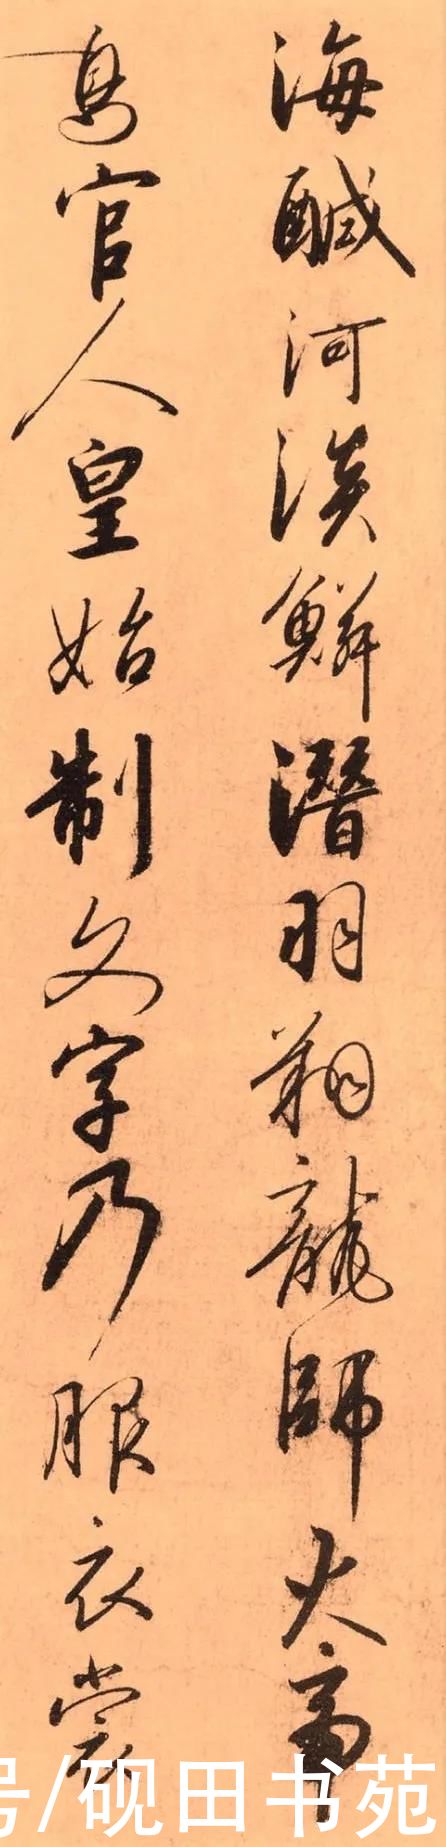 海醎河淡鱗潛羽翔龍師火帝
鳥官人皇始制文字乃服衣裳
号/砚田书苑